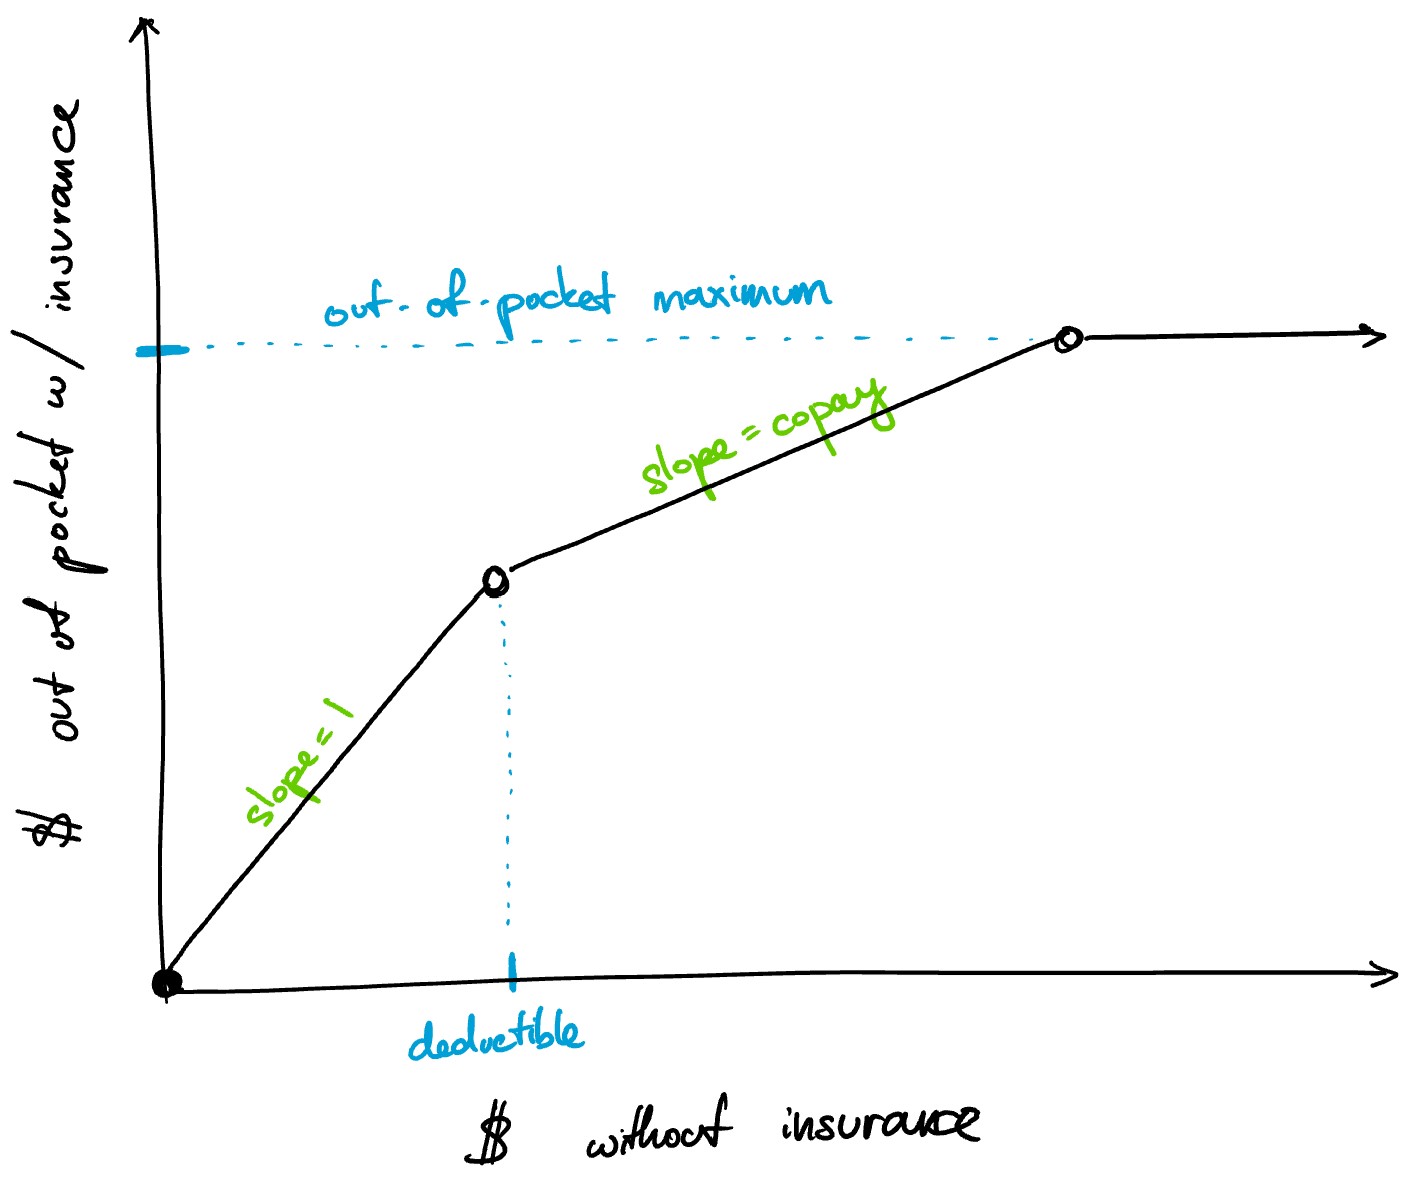 $ out of pocket w/ insurance
out-of-pocket maximum
slope = copay
slope = 1
deductible
$ without insurance